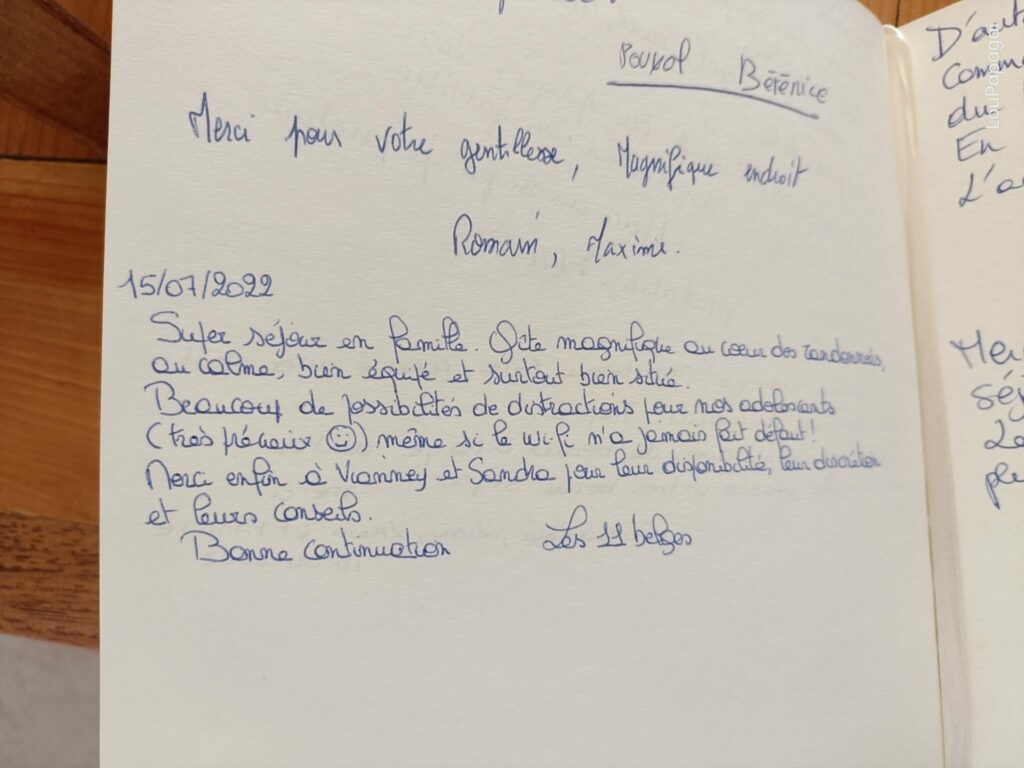 Bérénice
Merci pour votre gentillesse, Magnifique endroit
Romain, Maxime.
15/07/2022
Super séjour en famille. Gîte magnifique au coeur des randonnées,
au calme, bien équipé et surtout bien situé.
Beaucoup de possibilités de distractions pour nos adolescents
(très précieux ☺) même si le wi-fi n'a jamais fait défaut!
Merci enfin à Vianney et Sandra pour leur disponibilité, leur discrétion
et leurs conseils.
Bonne continuation
Les 11 belges
D'aut
Comm
du
En
L'a
Mer
séj
ple
LouPapagai